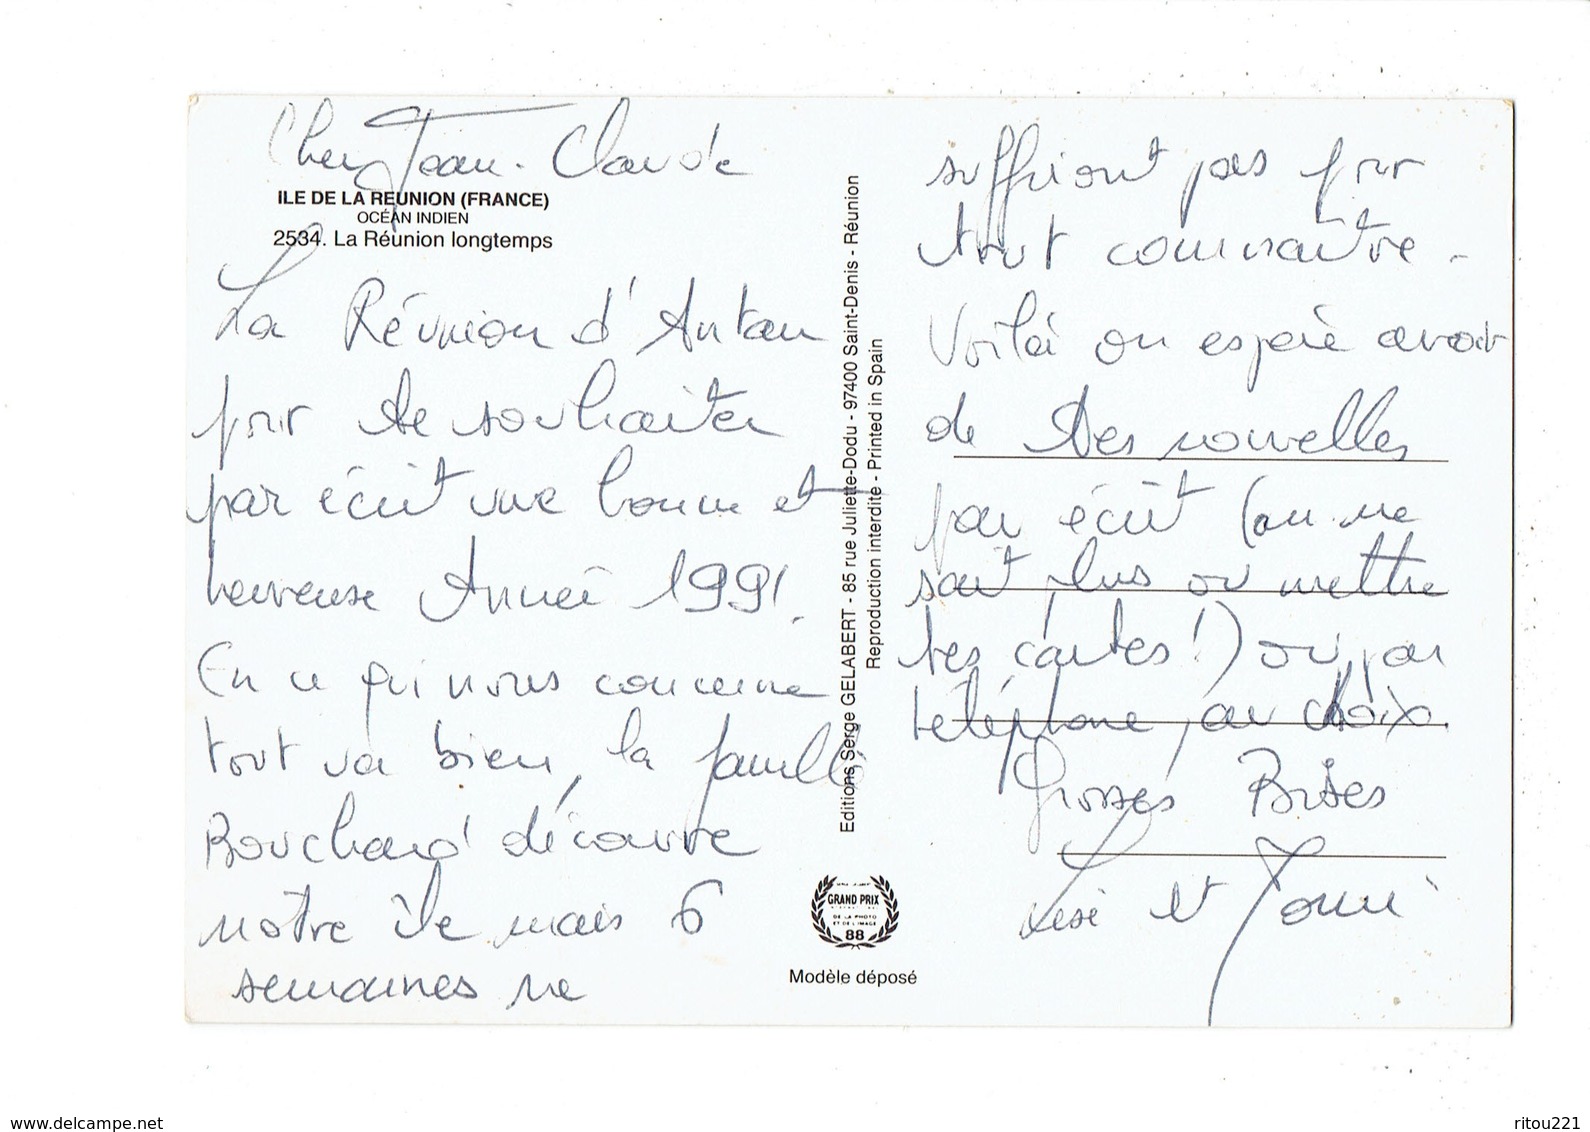 Cher Jean-Claude
ILE DE LA REUNION (FRANCE)
OCÉAN INDIEN
2534. La Réunion longtemps
La Réunion d'Antan
pour te souhaiter
par écrit une bonne et
heureuse Année 1991.
En ce qui nous concerne
tout va bien, la famille
Bouchard découvre
notre île mais 6
semaines ne
suffiront pas pour
tout connaître.
Voilà on espère avoir
de tes nouvelles
par écrit (on ne
sait plus où mettre
tes cartes !) ou par
téléphone, au choix.
Grosses Bises
et
Editions Serge GELABERT - 85 rue Juliette-Dodu - 97400 Saint-Denis - Réunion
Reproduction interdite - Printed in Spain
GRAND PRIX
DE LA PHOTO
ET DE L'IMAGE
88
Modèle déposé
www.delcampe.net
ritou221